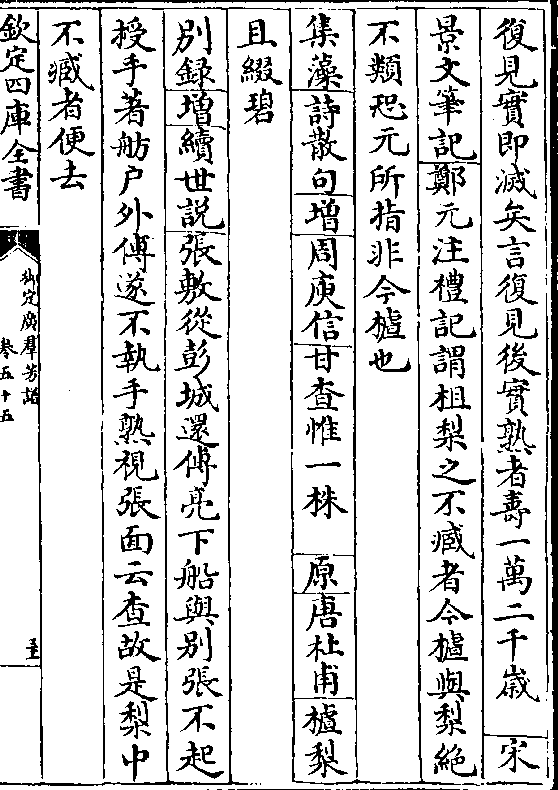 復見實即滅矣言復見後實熟者壽一萬二千歳　宋
景文筆記鄭元注禮記謂柤梨之不臧者今樝與梨絕
不類恐元所指非今樝也
集藻詩散句增周庾信甘查惟一株　原唐杜甫樝梨
且綴碧
別録增續世説張敷從彭城還傅亮下船與别張不起
授手著舫户外傅遂不執手熟視張面云查故是梨中
不臧者便去
欽定四庫全書
御定廣羣芳譜
卷五十五